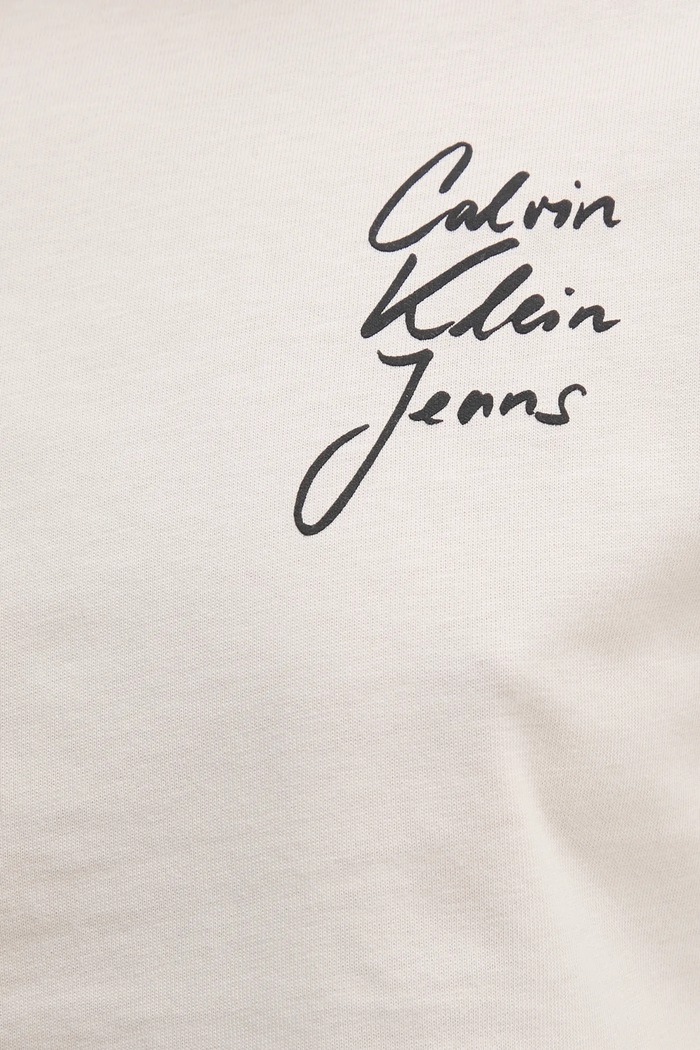 Calvin
Klein
Jeans